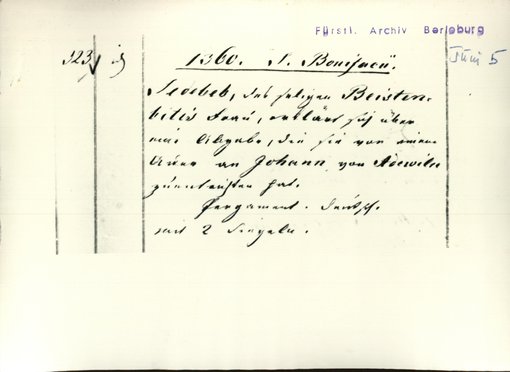 Fürstl. Archiv Berleburg
323
1360. S. Bonifacii.
Juni 5
des seligen Beisten-
bilis Frau, erklärt sich über
eine Abgabe, die sie von einem
an Johann von
zu entrichten hat.
Pergament. Deutsch.
mit 2 Siegeln.